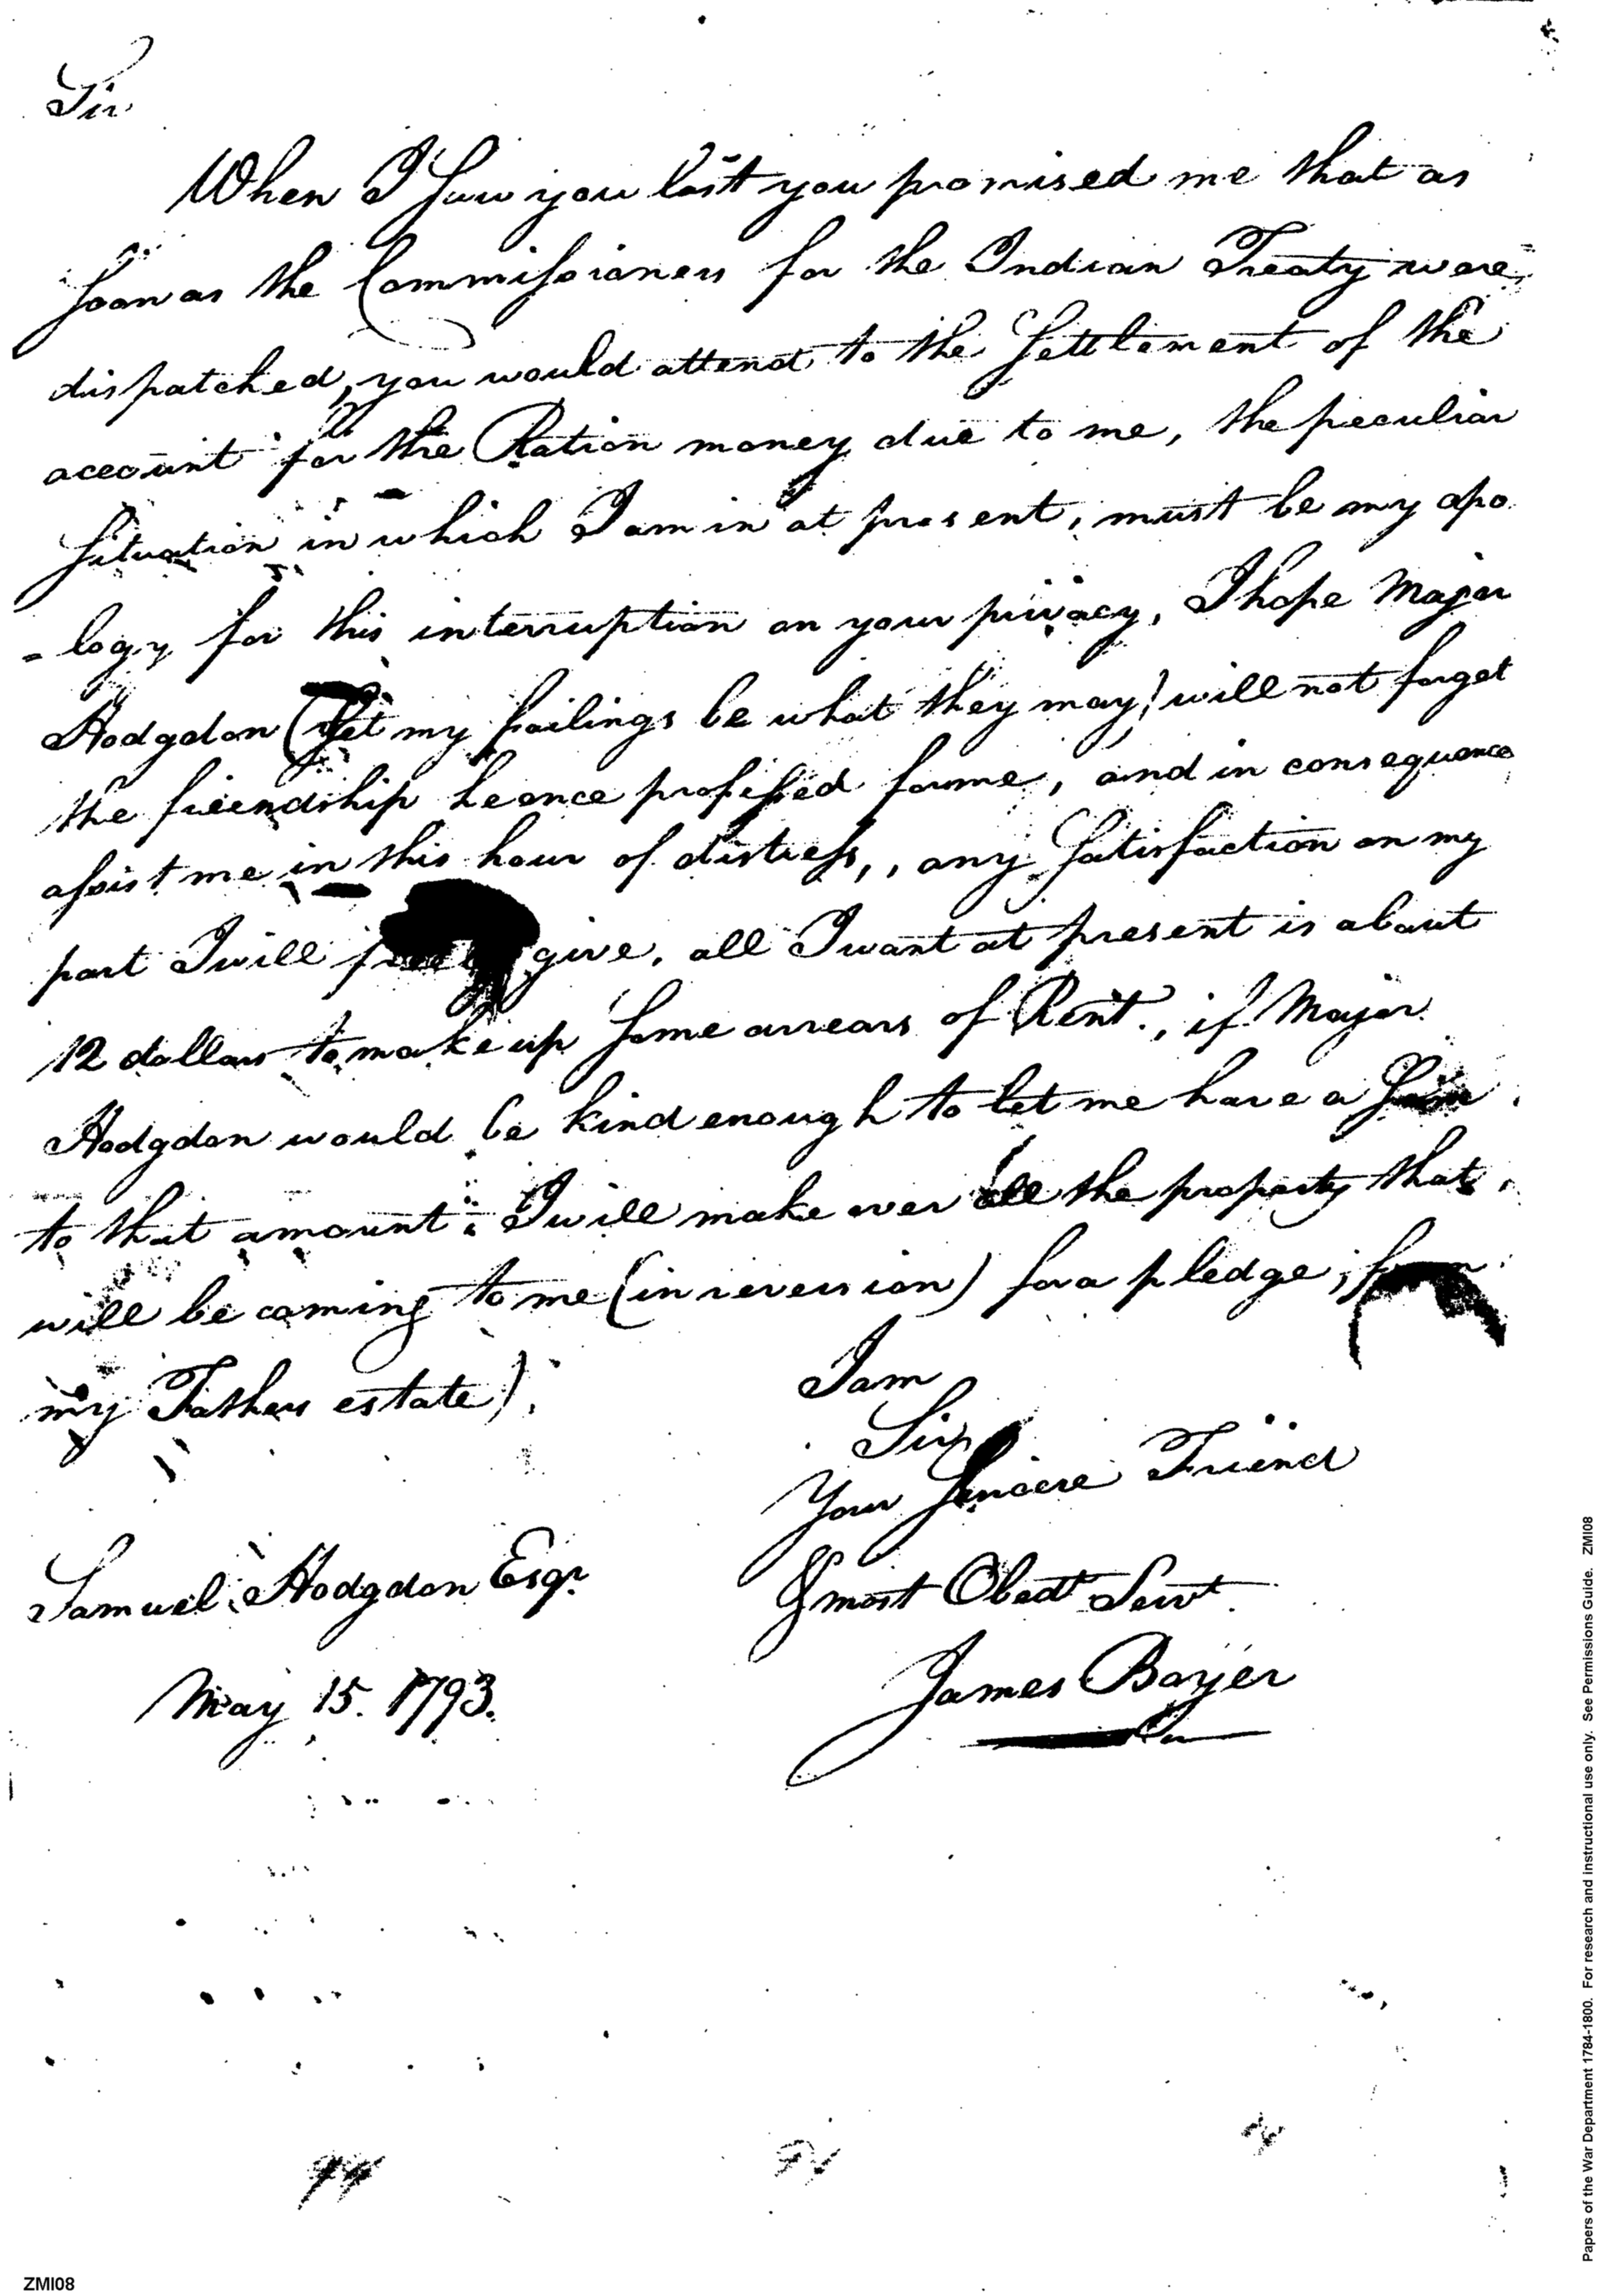 Sir
When I saw you last you promised me that as
soon as the Commissioners for the Indian Treaty were
dispatched, you would attend to the settlement of the
account for the Ration money due to me, the peculiar
situation in which I am in at present, must be my apo
-logy for this interruption on your privacy, I hope Major
Hodgdon (let my failings be what they may) will not forget
the friendship he once professed for me, and in consequence
assist me in this hour of distress,, any satisfaction on my
part I will give, all I want at present is about
12 dollars to make up some arrears of Rent., if Major
Hodgdon would be kind enough to let me have a
to that amount; I will make over all the property that
will be coming to me (in reversion) for a pledge, from
my Fathers estate).
I am
Sir
Your Sincere Friend
& most Obedt Servt.
James Boyer
Samuel Hodgdon Esqr
May 15. 1793.
Papers of the War Department 1784-1800. For research and instructional use only. See Permissions Guide. ZMI08
ZMI08